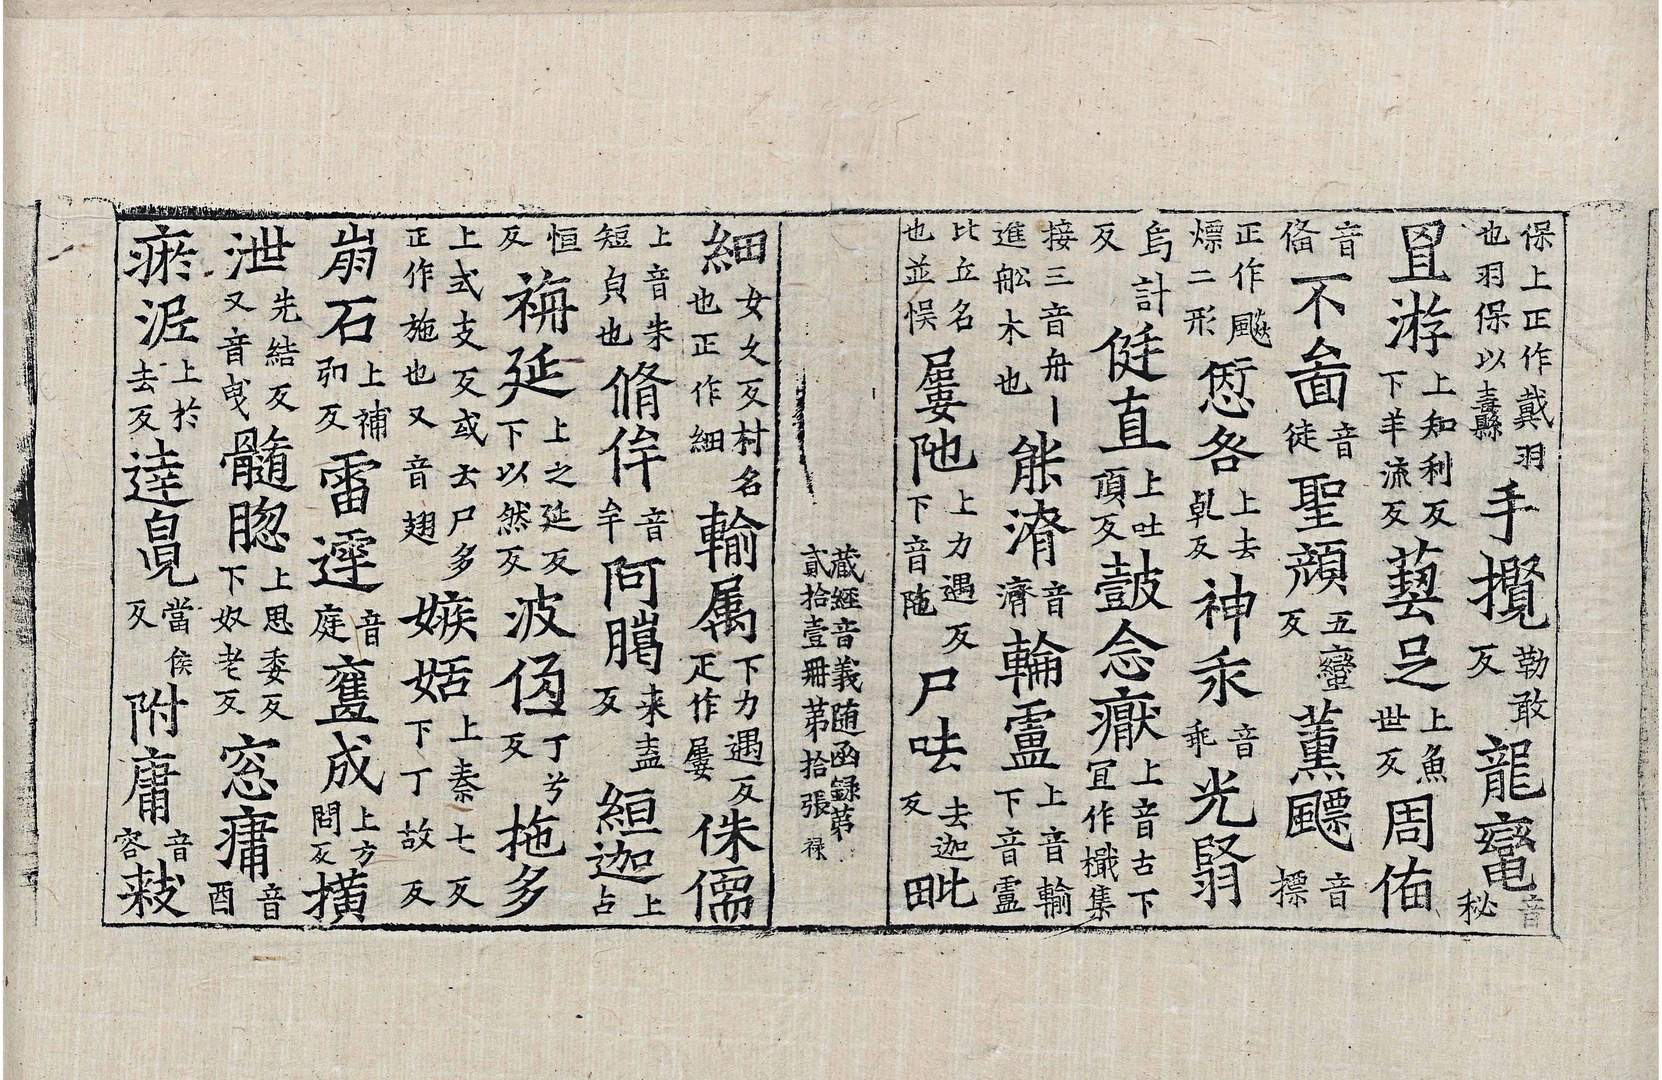 保上正作戴羽也羽保以纛縣手攪勒敢反龍鸞音秘
罝游上知利反下羊流反藝足上魚世反周侑
音偹不齒音徒聖顏五蠻反薰飃音摽
正作飈熛二形愆咎上去乹反神乖音乖光翳
烏計反侹直上吐頂反鼓念癥上音古下冝作檝集
接三音舟丨進舩木也能濟音濟輪靈上音輪下音靈
比丘名也並悮屢陁上力遇反下音陁尸呿去迦反毗
蔵經音義随函録第貳拾壹冊第拾張 禄
細女夂反村名也正作細輸屬下力遇反疋作屢侏儒
上音朱短貟也脩侔音牟阿朅来盍反絙迦上占
恒反栴延上之延反下以然反波㐌丁兮反拖多
上式支反或去尸多正作施也又音翅嫉妬上秦七反下丁故反
崩石上補弘反雷霆音庭奮成上方問反撗
泄先結反又音曳髓𦛁上思委反下奴老反窓牗音酉
瘀泥上於去反逵皃當侯反附庸音容敕